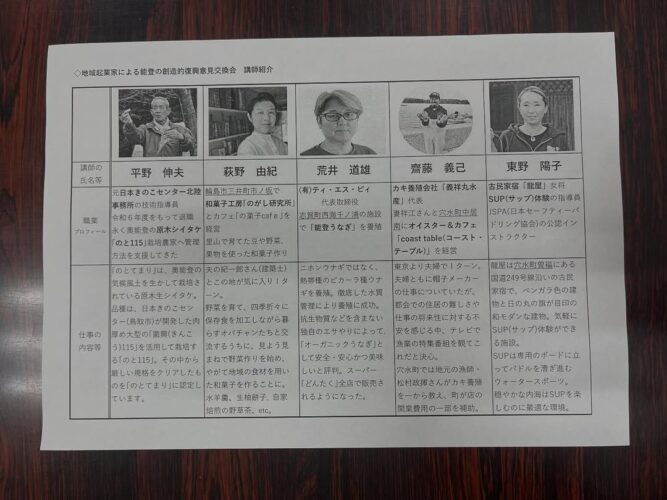 ◇地域起業家による能登の創造的復興意見交換会 講師紹介
講師の
氏名等
平野 伸夫
萩野 由紀
荒井 道雄
齋藤 義己
東野 陽子
職業
プロフィール
元日本きのこセンター北陸
事務所の技術指導員
令和6年度をもって退職
永く奥能登の原木シイタケ
「のと115」栽培農家へ管理
方法を支援してきた
輪島市三井町市ノ坂で
和菓子工房「のがし研究所」
とカフェ「の菓子cafe」を
経営
里山で育てた豆や野菜、
果物を使った和菓子作り
(有)ティ・エス・ピィ
代表取締役
志賀町西海千ノ浦の施設
で「能登うなぎ」を養殖
カキ養殖会社「義祥丸水
産」代表
妻祥江さんと穴水町中居
南にオイスター&カフェ
「coast table(コースト・
テーブル)」を経営
古民家宿「龍屋」女将
SUP(サップ)体験の指導員
JSPA(日本セーフティーパ
ドリング協会)の公認イン
ストラクター
仕事の
内容等
「のとてまり」は、奥能登の
気候風土を生かして栽培さ
れている原木生シイタケ。
品種は、日本きのこセン
ター(鳥取市)が開発した肉
厚で大型の「菌興(きんこ
う)115」を活用して栽培す
る「のと115」。その中から
厳しい規格をクリアしたもの
を「のとてまり」に認定し
ています。
夫の紀一郎さん(建築士)
とこの地が気に入りIター
ン。
野菜を育て、四季折々に
保存食を加工しながら暮
らすオバチャンたちと交
流するうちに、見よう見
まねで野菜作りを始め、
やがて地域の食材を用い
た和菓子を作ることに。
水羊羹、生柚餅子、自家
焙煎の野草茶、etc.
ニホンウナギではなく、
熱帯種のビカーラ種ウナ
ギを養殖。徹底した水質
管理により養殖に成功。
抗生物質などを含まない
独自のエサやりによって、
「オーガニックうなぎ」と
して安全・安心かつ美味
しいと評判。スーパー
「どんたく」全店で販売さ
れるようになった。
東京より夫婦でIターン。
夫婦ともに帽子メーカー
の仕事についていたが、
都会での住居の難しさや
仕事の将来性に対する不
安を感じる中、テレビで
漁業の特集番組を観てこ
れだと決心。
穴水町では地元の漁師・
松村政揮さんがカキ養殖
を一から教え、町が店の
開業費用の一部を補助。
龍屋は穴水町曽福にある
国道249号線沿いの古民
家宿で、ベンガラ色の建
物と日の丸の旗が目印の
和モダンな建物。気軽に
SUP(サップ)体験ができ
る施設。
SUPは専用のボードに立
ってパドルを漕ぎ進む
ウォータースポーツ。
穏やかな内海はSUPを楽
しむのに最適な環境。